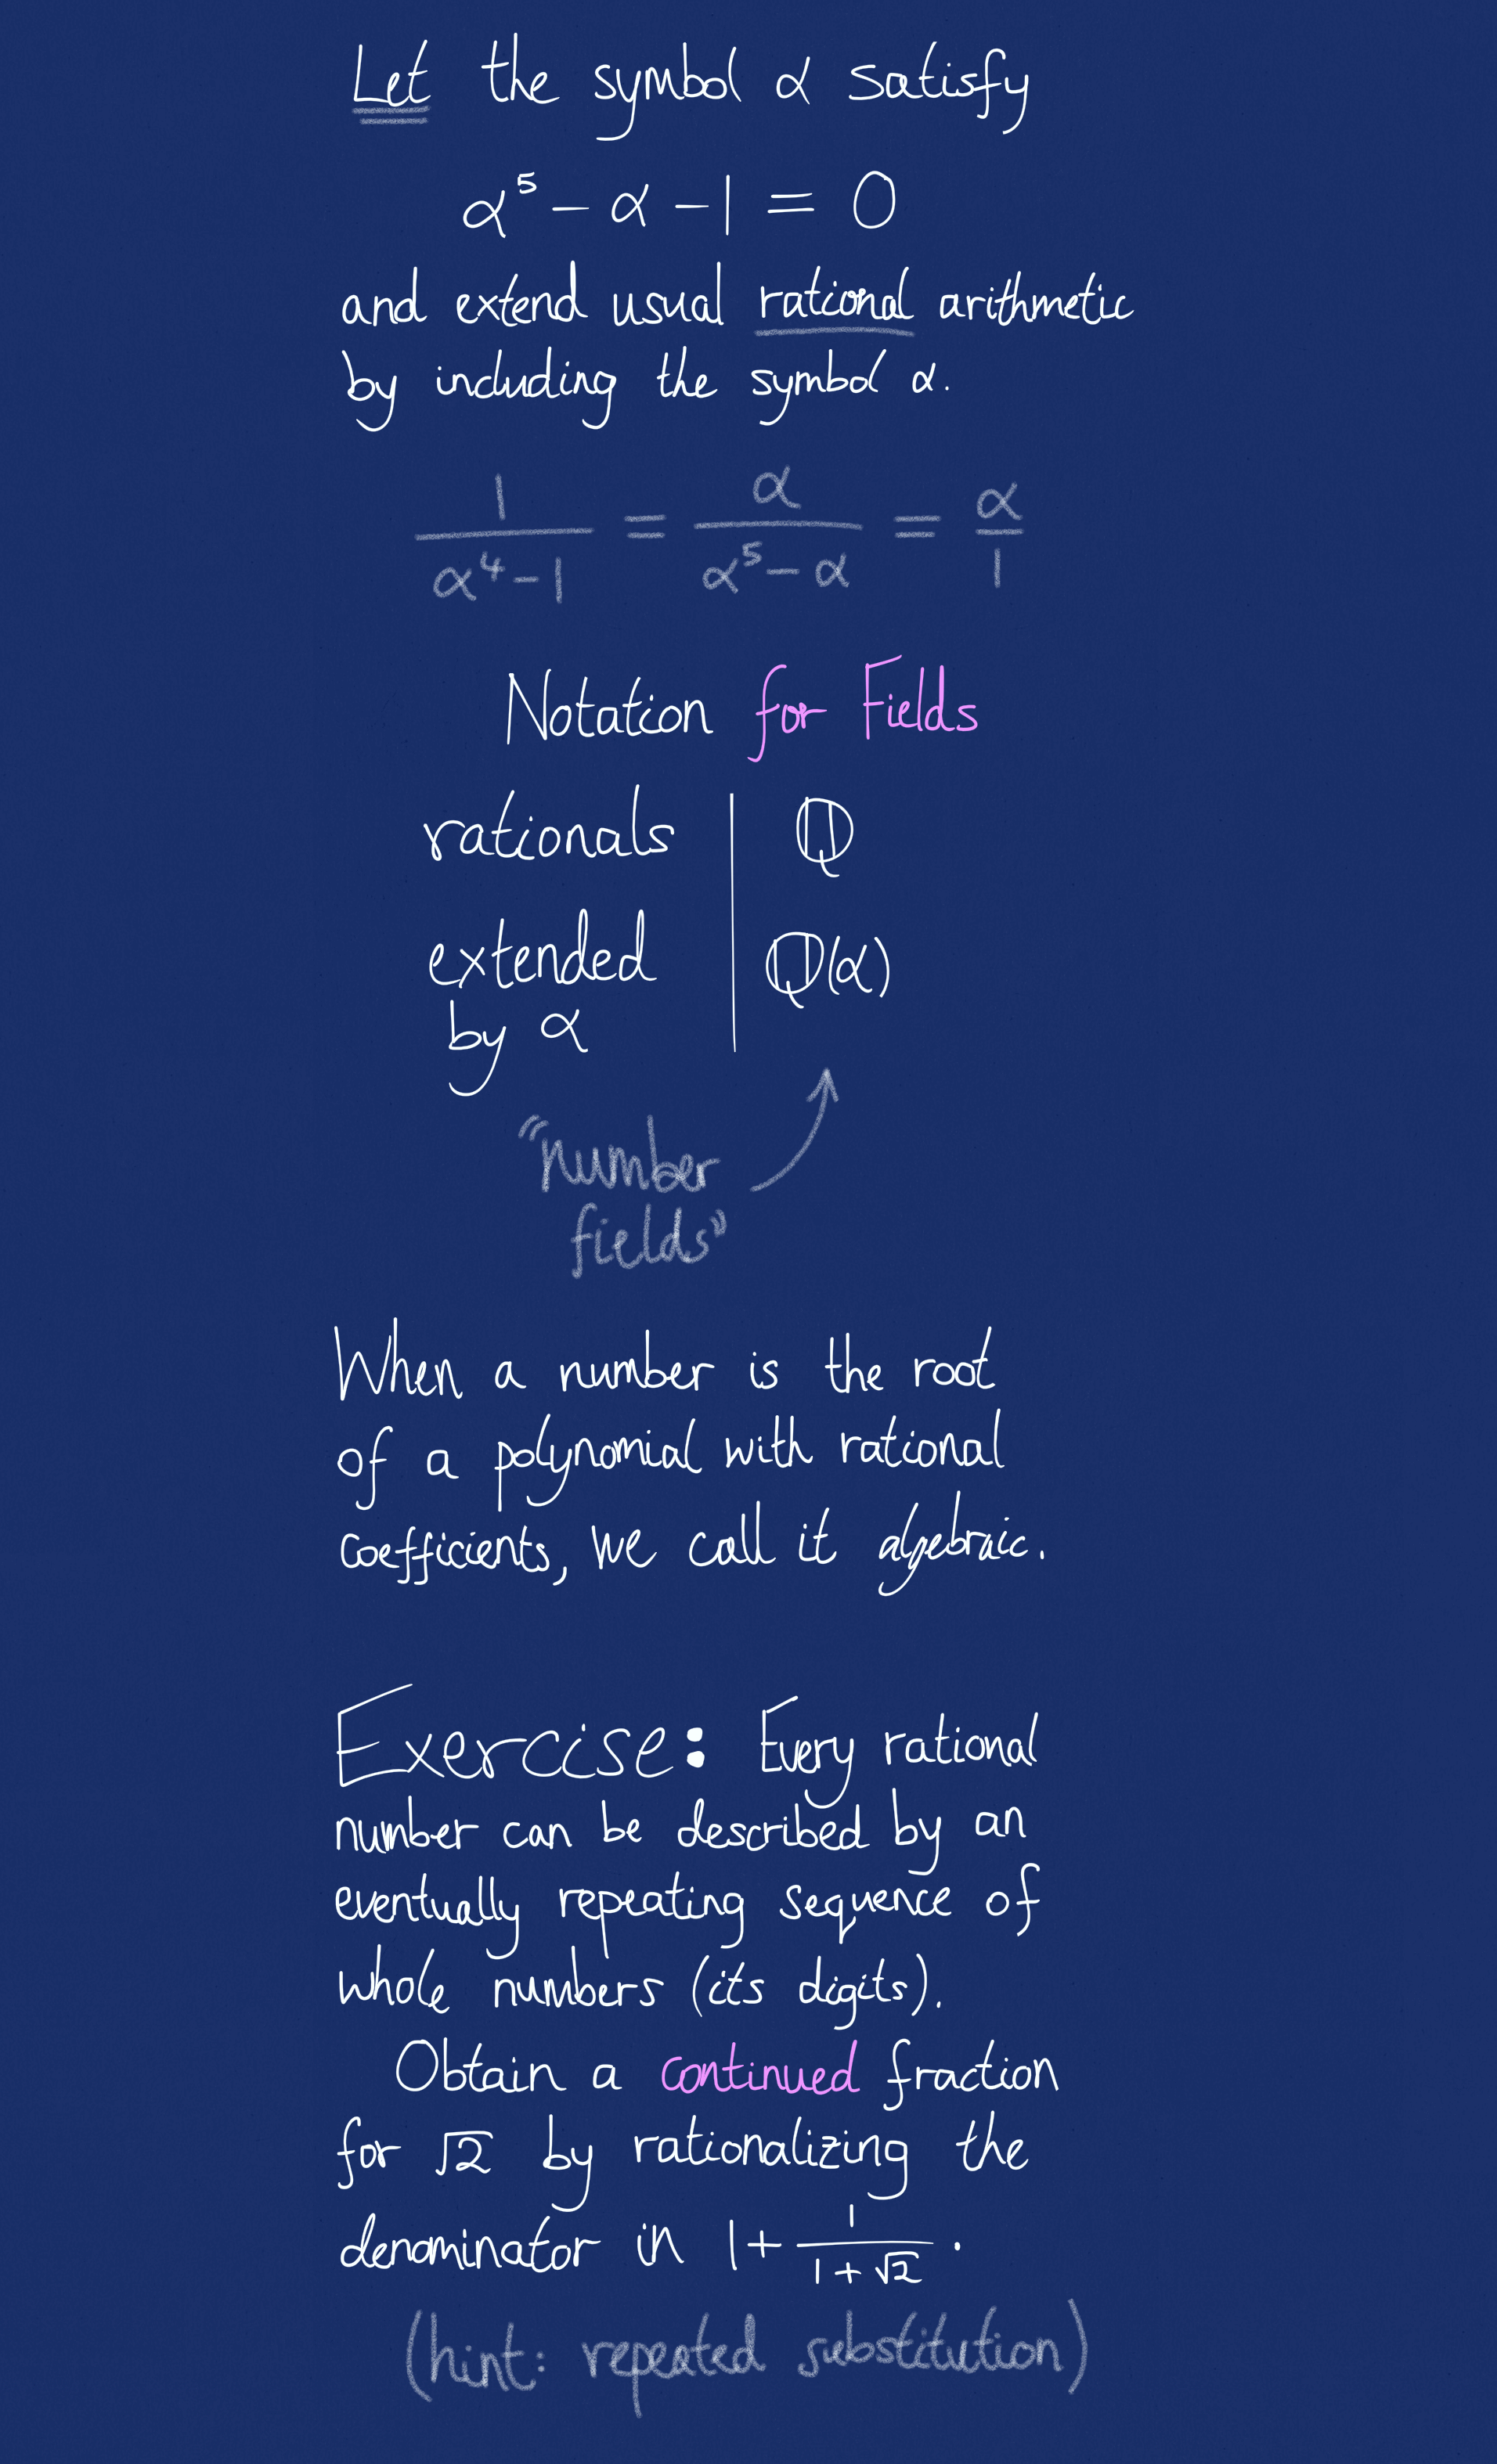 Let the symbol α satisfy
α⁵ − α − 1 = 0
and extend usual rational arithmetic
by including the symbol α.
1/(α⁴−1) = α/(α⁵−α) = α/1
Notation for Fields
rationals | ℚ
extended | ℚ(α)
by α
"number
fields"
When a number is the root
of a polynomial with rational
coefficients, we call it algebraic.
Exercise: Every rational
number can be described by an
eventually repeating sequence of
whole numbers (its digits).
Obtain a continued fraction
for √2 by rationalizing the
denominator in 1 + 1/(1+√2).
(hint: repeated substitution)